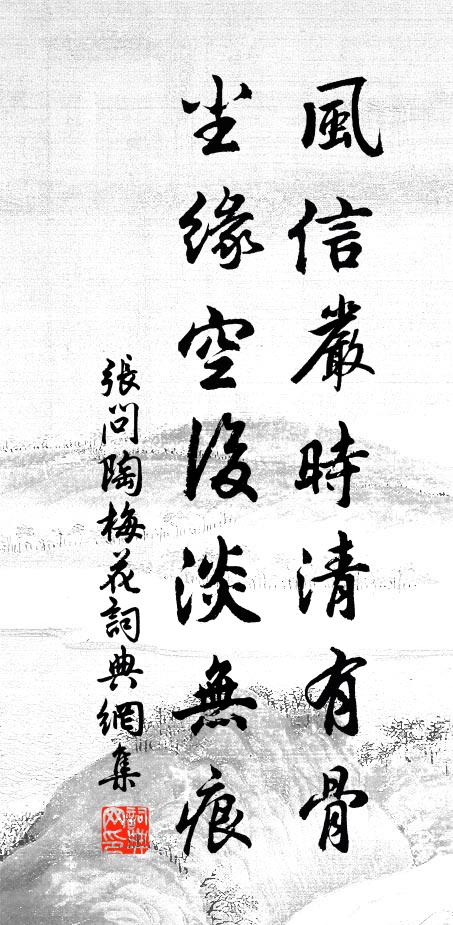 風信嚴時清有骨
尘緣空後淡無痕
張問陶梅花詞典網集
詞典網印